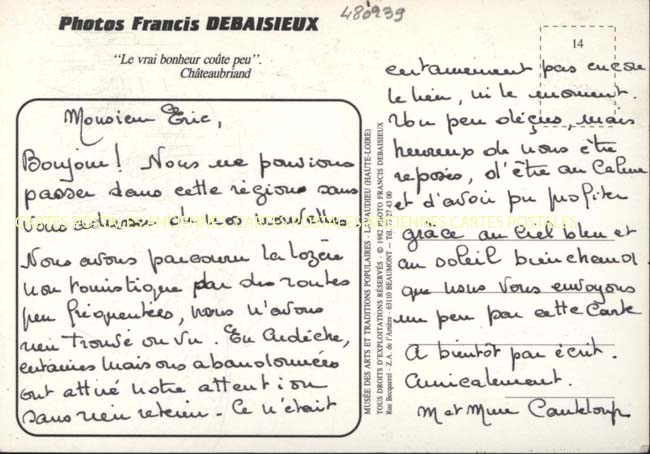 480939
Photos Francis DEBAISIEUX
"Le vrai bonheur coûte peu".
Châteaubriand
14
Monsieur Eric,
Bonjour! Nous ne pouvions
passer dans cette région sans
vous adresser de nos nouvelles
Nous avons parcouru la lozère
non touristique par des routes
peu fréquentées, nous n'avons
rien trouvé ou vu. En Ardèche,
certaines maisons abandonnées
ont attiré notre attention
sans rien retenir. Ce n'était
certainement pas encore
le lieu, ni le moment.
Un peu déçus, mais
heureux de nous être
reposés, d'être au Calme
et d'avoir pu profiter
grâce au ciel bleu et
au soleil bien chaud
que nous vous envoyons
un peu par cette Carte
A bientôt par écrit.
Amicalement.
M et Mme Canteloup
MUSÉE DES ARTS ET TRADITIONS POPULAIRES - LAVAUDIEU (HAUTE-LOIRE)
TOUS DROITS D'EXPLOITATIONS RÉSERVÉS - © 1982 PHOTO FRANCIS DEBAISIEUX
Rue Becquerel - Z.A. de l'Artière - 63110 BEAUMONT - Tél. 27 43 00